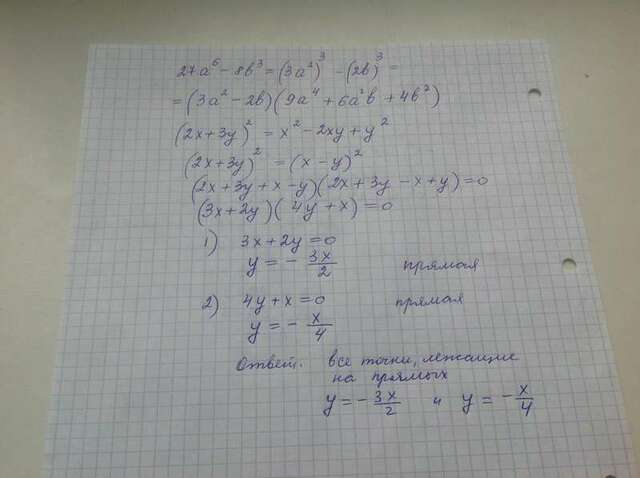 27a⁶ - 8b³ = (3a²)³ - (2b)³ =
= (3a² - 2b)(9a⁴ + 6a²b + 4b²)
(2x+3y)² = x² - 2xy + y²
(2x+3y)² = (x-y)²
(2x+3y+x-y)(2x+3y-x+y)=0
(3x+2y)(4y+x)=0
1) 3x+2y=0
y = - 3x/2 прямая
2) 4y+x=0 прямая
y = - x/4
Ответ. все точки, лежащие
на прямых
y = - 3x/2 и y = - x/4